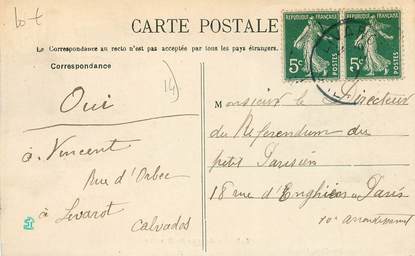 lot
CARTE POSTALE
Le Correspondance au recto n'est pas acceptée par tous les pays étrangers.
Correspondance
14)
Oui
à Vincent
Rue d'Orbec
à Livarot
Calvados
REPUBLIQUE FRANÇAISE
5c
POSTES
REPUBLIQUE FRANÇAISE
5c
POSTES
Monsieur le Directeur
du Référendum du
petit Parisien
18 rue d'Enghien Paris
10e arrondissement